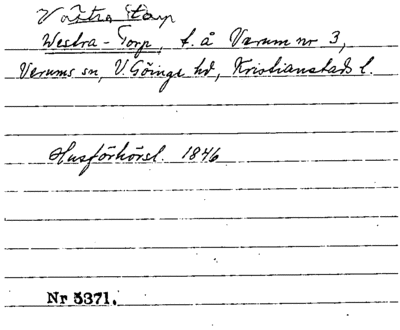 Västra torp
Westra-Torp, t. å Verum nr 3,
Verums sn, V. Göinge hd, Kristianstads l.
Husförhörsl. 1846
Nr 5371.